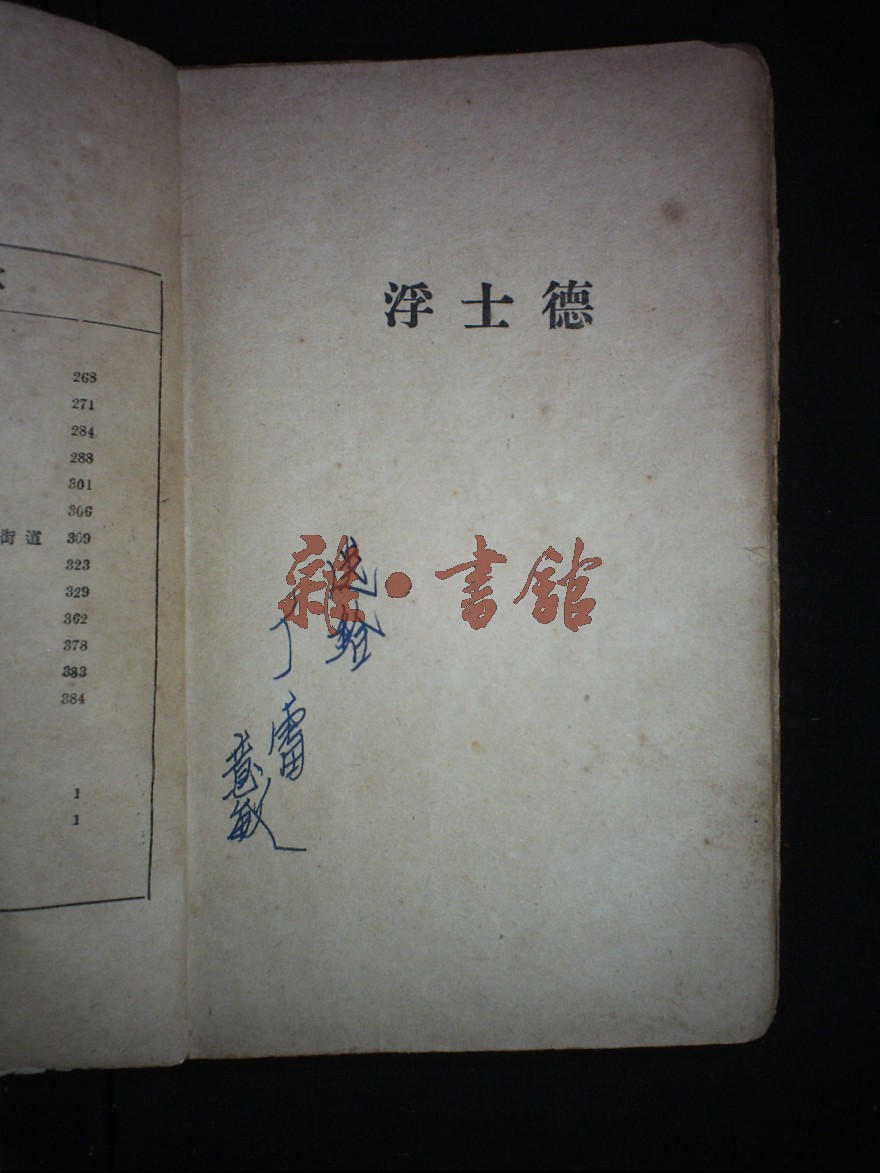 268
271
284
288
301
306
街道 309
323
329
362
378
383
384
1
1
浮士德
雜·書館
雷